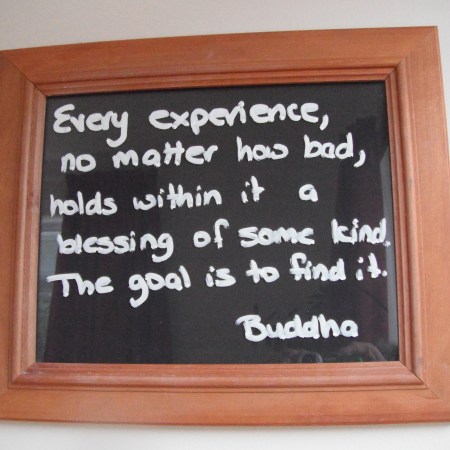 Every experience,
no matter how bad,
holds within it a
blessing of some kind.
The goal is to find it.
Buddha